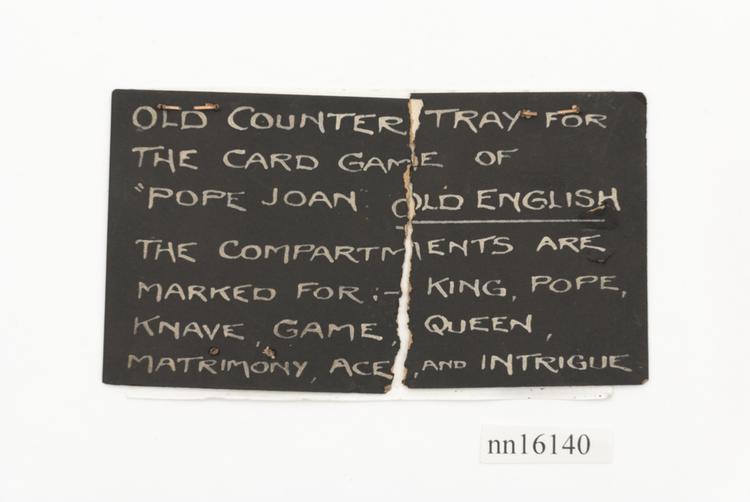 OLD COUNTER TRAY FOR
THE CARD GAME OF
"POPE JOAN OLD ENGLISH
THE COMPARTMENTS ARE
MARKED FOR :- KING, POPE,
KNAVE, GAME, QUEEN,
MATRIMONY, ACE, AND INTRIGUE
nn16140